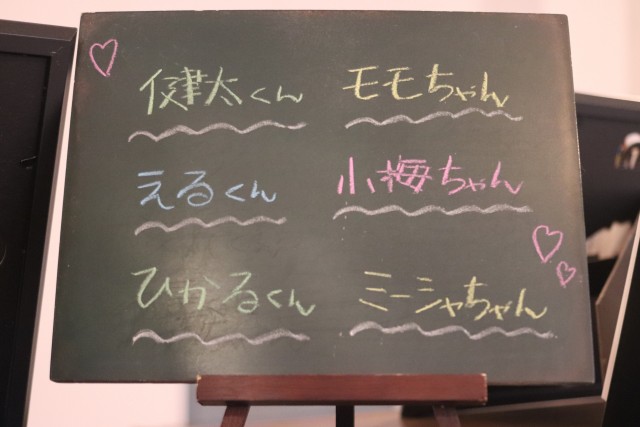 健太くん モモちゃん
えるくん 小梅ちゃん
ひかるくん ミーシャちゃん